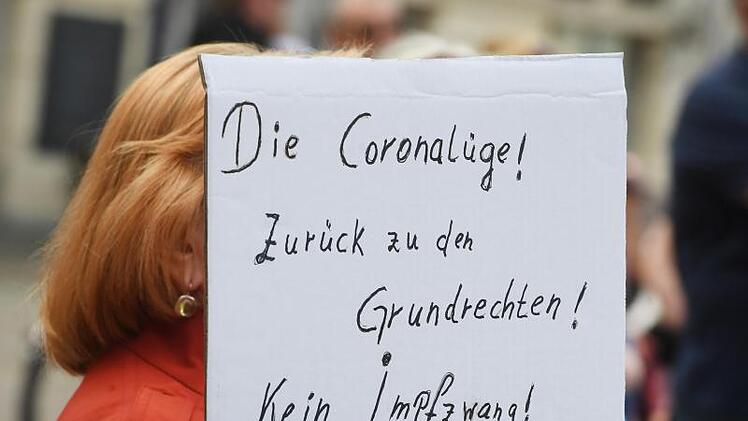 Die Coronalüge!
Zurück zu den
Grundrechten!
Kein Impfzwang!